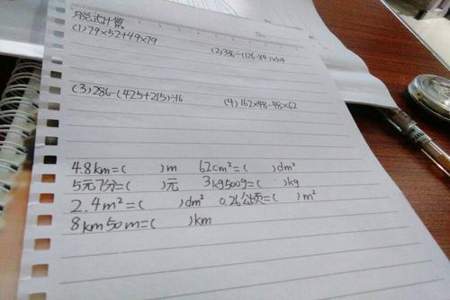 脱式计算
(1)79×52+49×79
(2)336-
(3)286-(425+215)÷16 (4)162×48-48×62
4.8km=( )m 62cm²=( )dm²
5元7分=( )元 3kg500g=( )kg
2.4m²=( )dm² 0.26公顷=( )m²
8km50m=( )km